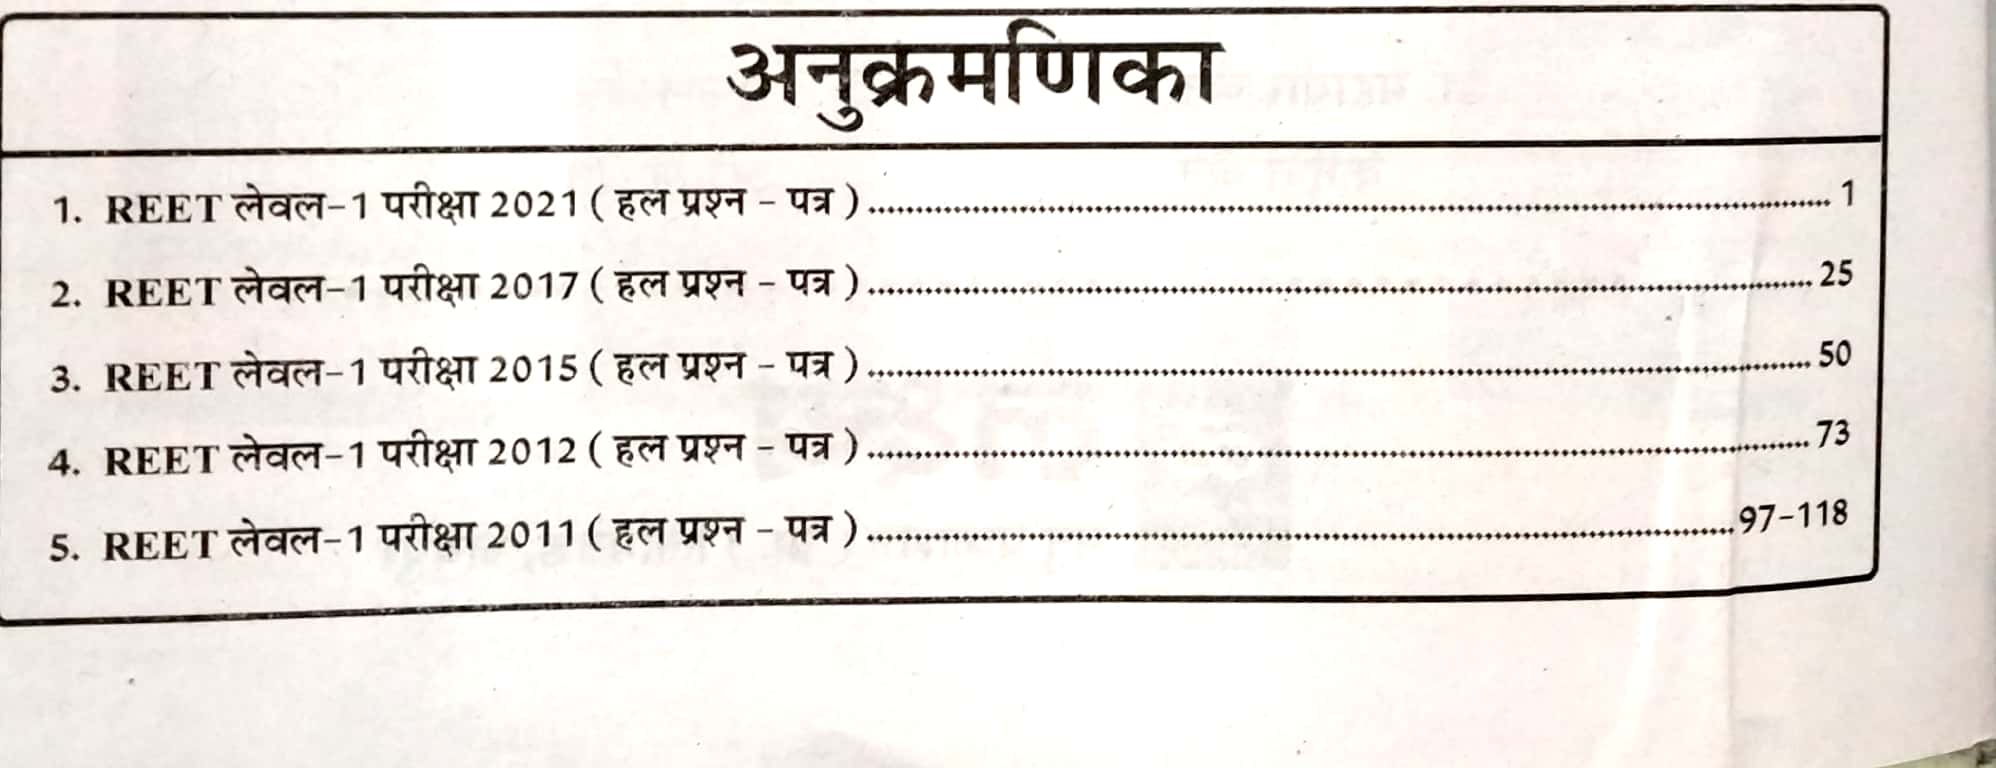 अनुक्रमणिका
1. REET लेवल-1 परीक्षा 2021 ( हल प्रश्न - पत्र ) ........ 1
2. REET लेवल-1 परीक्षा 2017 ( हल प्रश्न - पत्र ) ........ 25
3. REET लेवल-1 परीक्षा 2015 ( हल प्रश्न - पत्र ) ........ 50
4. REET लेवल-1 परीक्षा 2012 ( हल प्रश्न - पत्र ) ........ 73
5. REET लेवल-1 परीक्षा 2011 ( हल प्रश्न - पत्र ) ........ 97-118